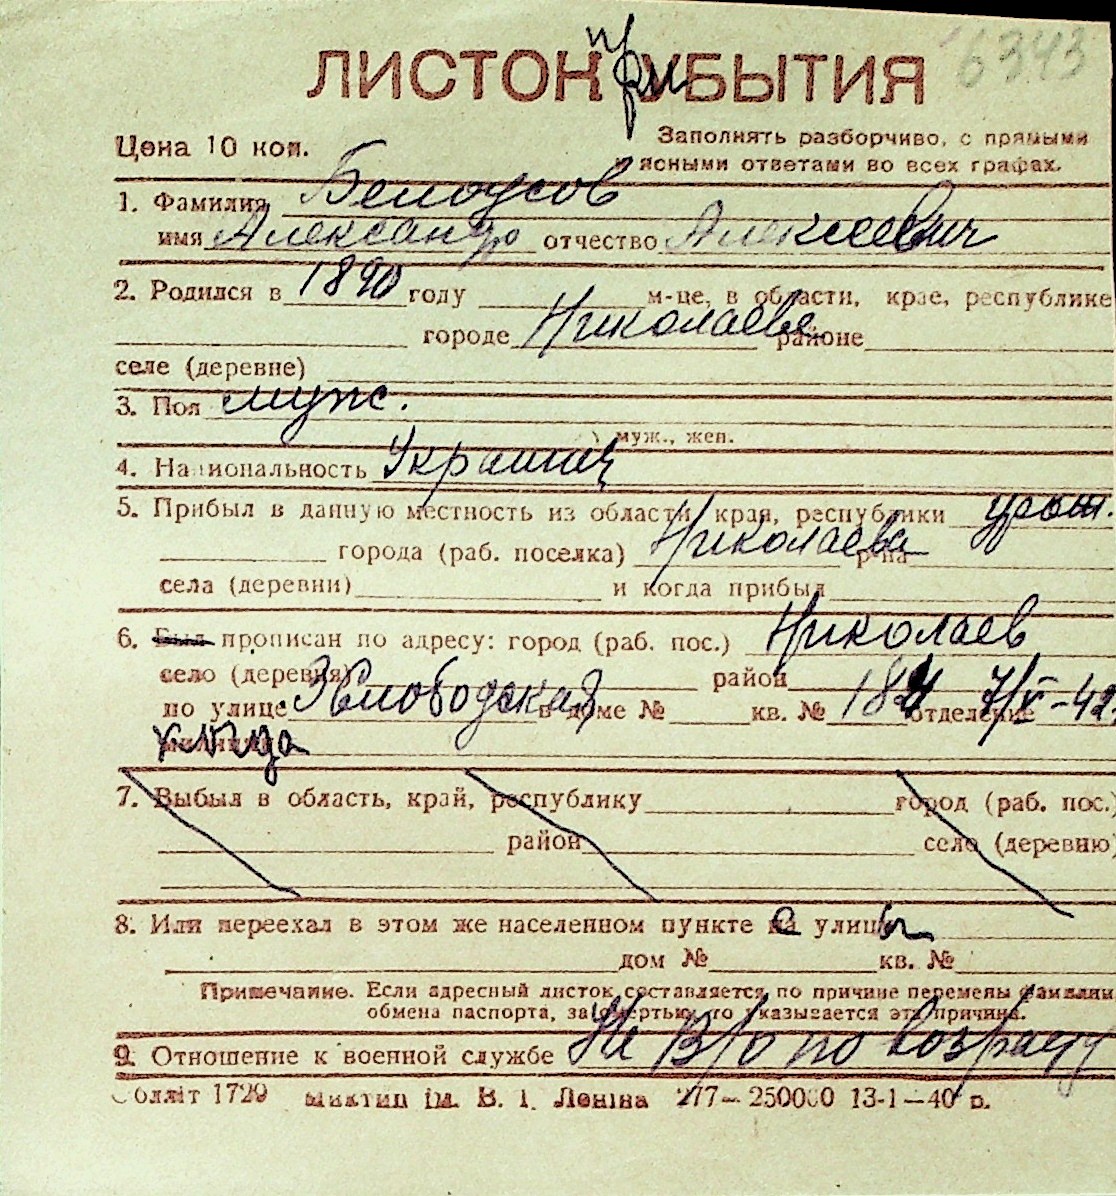 6343
ЛИСТОК при УБЫТИЯ
Цена 10 коп.
Заполнять разборчиво, с прямыми
ясными ответами во всех графах.
1. Фамилия Белоусов
имя Александр отчество Алексеевич
2. Родился в 1890 году м-це, в области, крае, республике
городе Николаеве районе
селе (деревне)
3. Пол муж.
муж., жен.
4. Национальность Украинец
5. Прибыл в данную местность из области, края, республики урож.
города (раб. поселка) Николаева р-на
села (деревни) и когда прибыл
6. Был прописан по адресу: город (раб. пос.) Николаев
село (деревня) район
по улице 3 Слободская в доме № кв. № отделение 7/V-42
милиции
7. Выбыл в область, край, республику город (раб. пос.)
район село (деревню)
8. Или переехал в этом же населенном пункте с улицы
дом № кв. №
Примечание. Если адресный листок составляется по причине перемены фамилии
обмена паспорта, за смертью, то указывается эта причина.
9. Отношение к военной службе Не в/о по возрасту
Обліт 1729 Миктип ім. В. І. Леніна 277—250000 13-1—40 р.